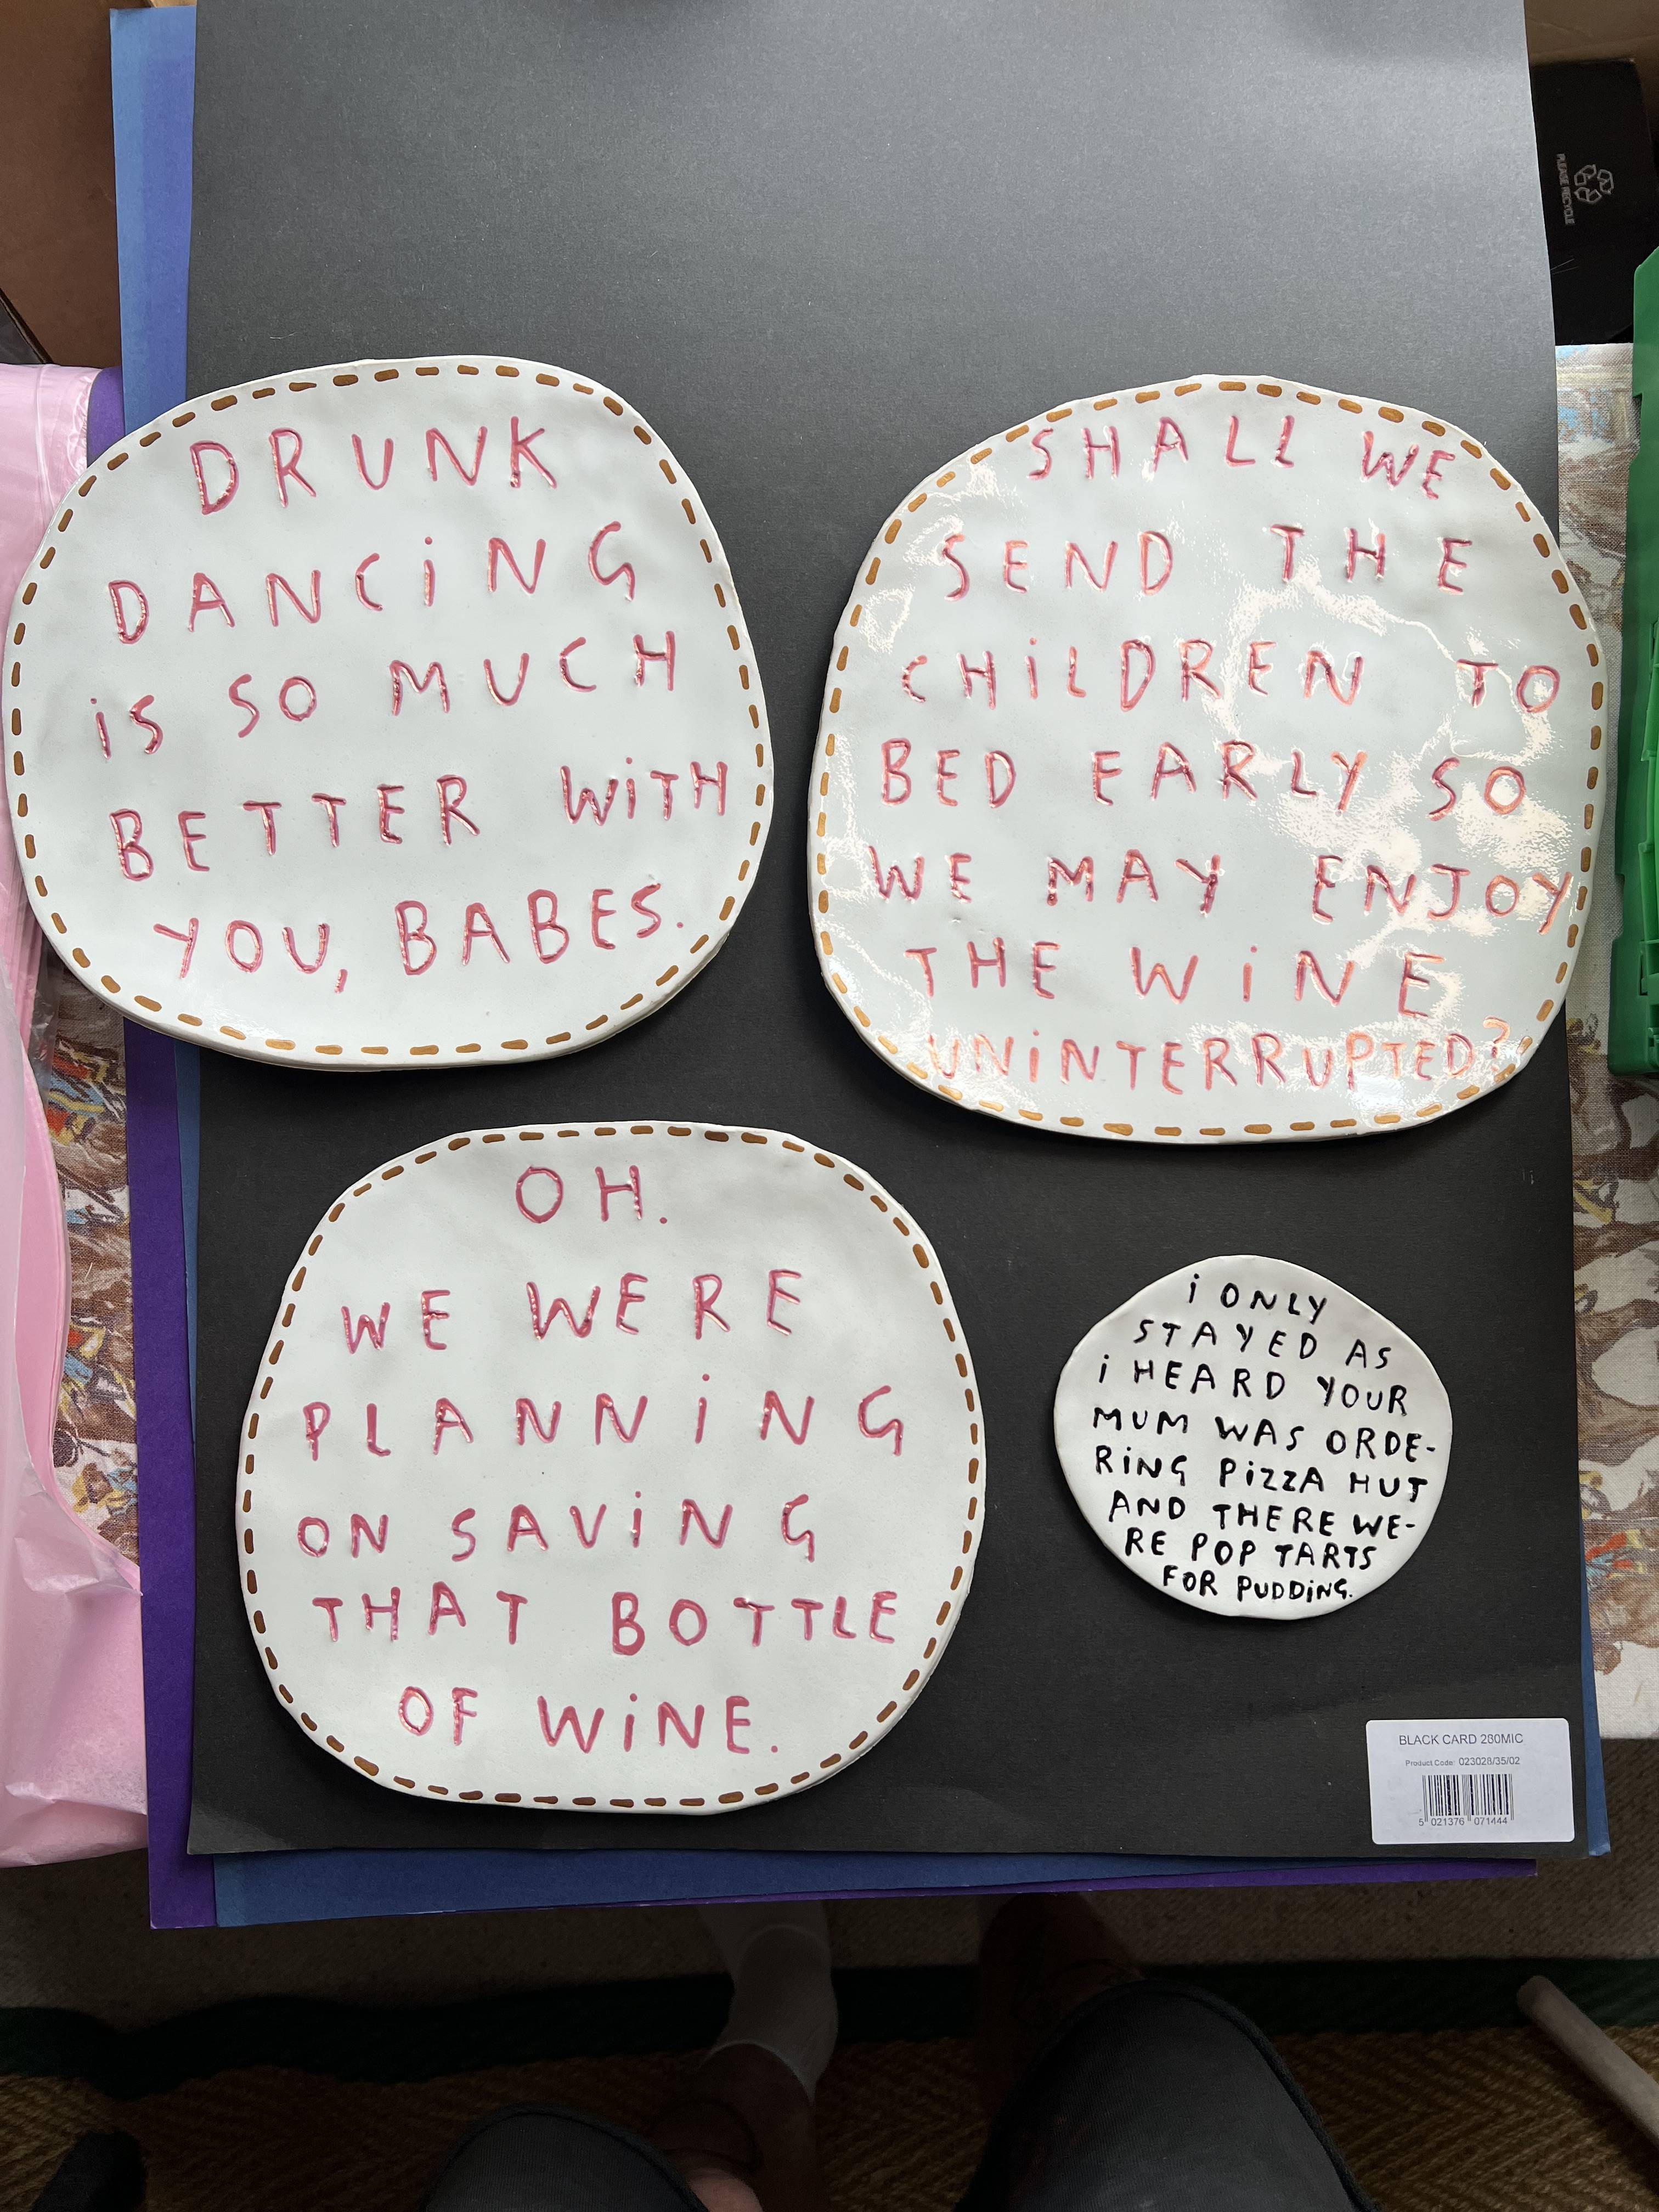 PLEASE RECYCLE
DRUNK
DANCiNG
iS SO MUCH
BETTER WiTH
YOU, BABES.
SHALL WE
SEND THE
CHiLDREN TO
BED EARLY SO
WE MAY ENJOY
THE WiNE
UNiNTERRUPTED?
OH.
WE WERE
PLANNiNG
ON SAViNG
THAT BOTTLE
OF WiNE.
i ONLY
STAYED AS
i HEARD YOUR
MUM WAS ORDE-
RiNG PiZZA HUT
AND THERE WE-
RE POP TARTS
FOR PUDDiNG.
BLACK CARD 280MIC
Product Code: 023028/35/02
5 021376 071444